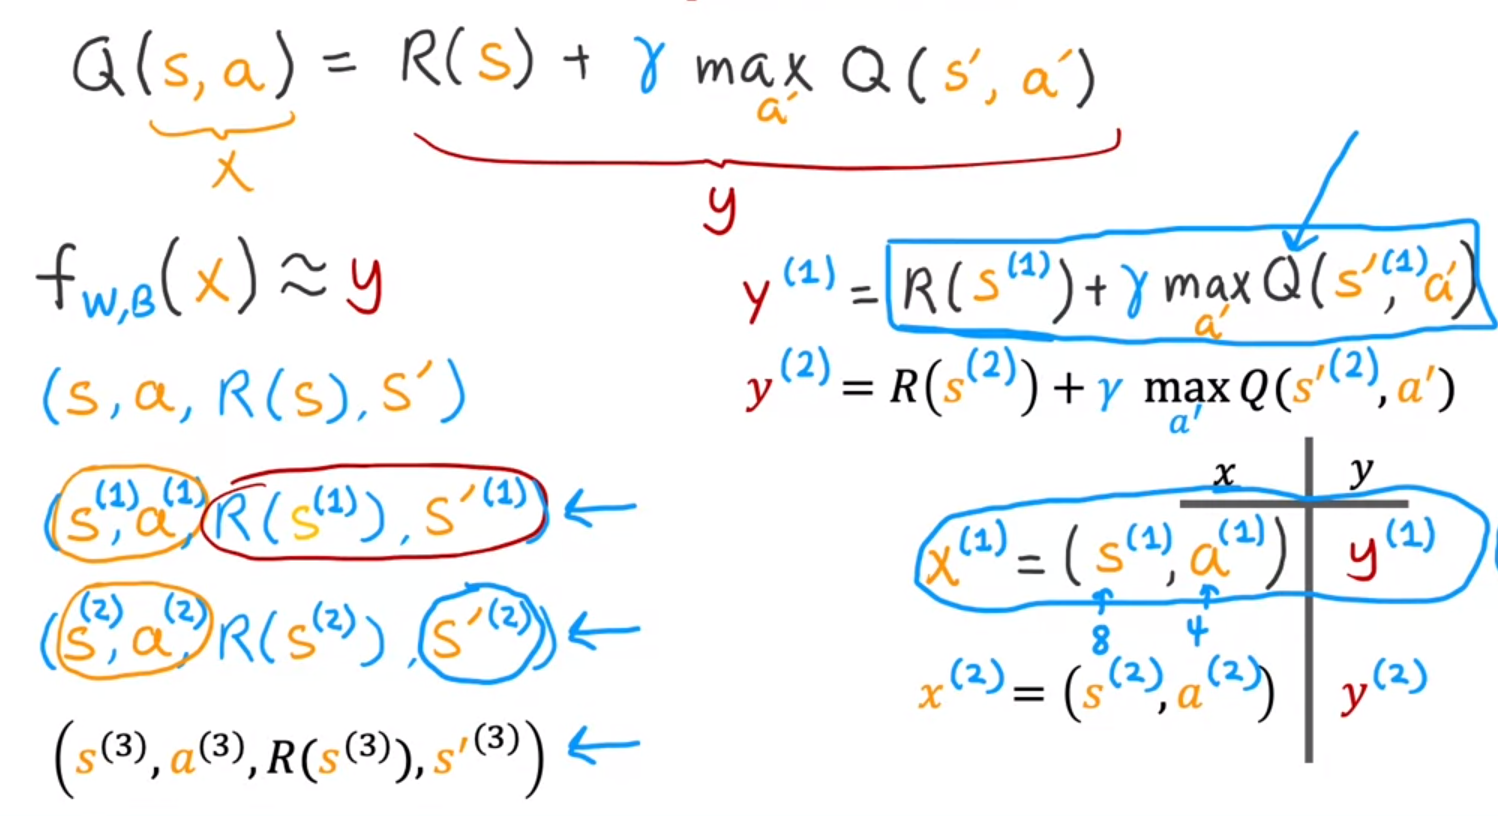 Q(s, a) = R(s) + γ max Q(s', a')
a'
x
y
f_{W,B}(x) ≈ y
(s, a, R(s), s')
(s^{(1)}, a^{(1)}, R(s^{(1)}), s'^{(1)}) ←
(s^{(2)}, a^{(2)}, R(s^{(2)}), s'^{(2)}) ←
(s^{(3)}, a^{(3)}, R(s^{(3)}), s'^{(3)}) ←
y^{(1)} = R(s^{(1)}) + γ max Q(s'^{(1)}, a')
a'
y^{(2)} = R(s^{(2)}) + γ max Q(s'^{(2)}, a')
a'
x y
x^{(1)} = (s^{(1)}, a^{(1)}) y^{(1)}
8 4
x^{(2)} = (s^{(2)}, a^{(2)}) y^{(2)}